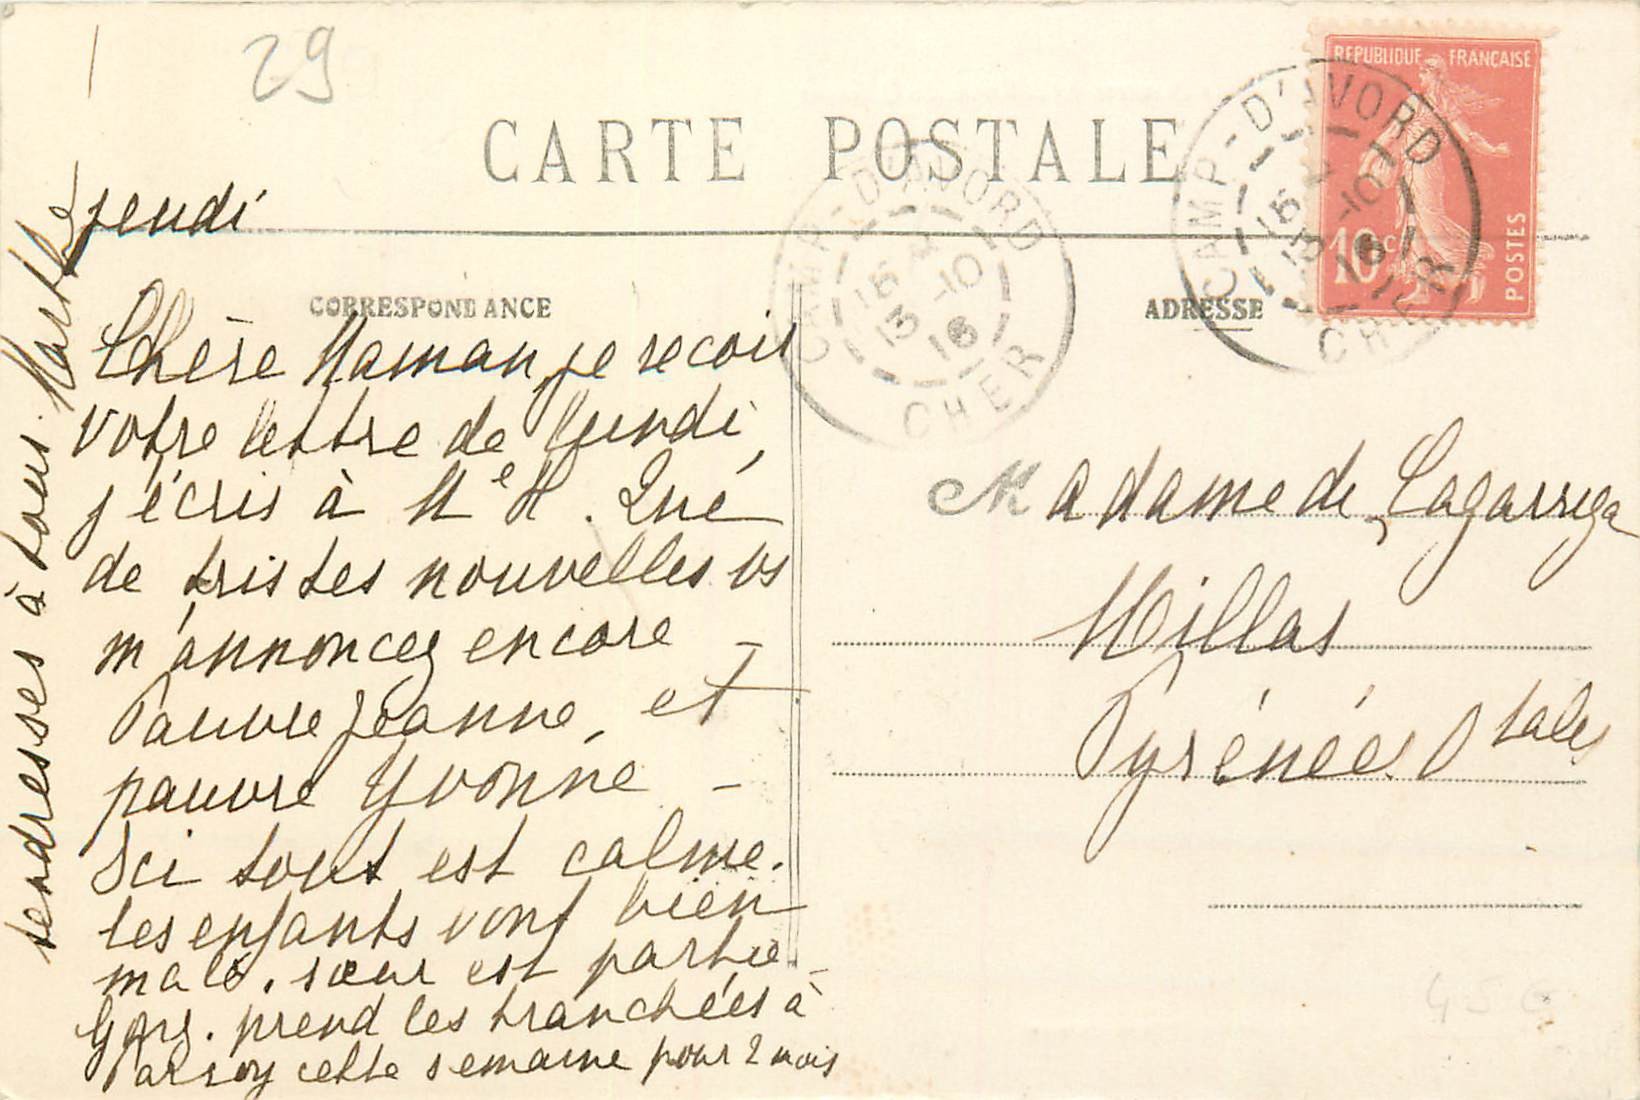 29
CARTE POSTALE
REPUBLIQUE FRANÇAISE
10c
POSTES
CAMP-D'AVORD
15
13-10
16
CHER
CAMP-D'AVORD
15
13-10
16
CHER
CORRESPONDANCE
ADRESSE
jeudi
Chère Maman, je reçois
votre lettre de lundi,
j'écris à Me H. Qué
de tristes nouvelles vs
m'annoncez encore -
Pauvre Jeanne, et
pauvre Yvonne -
Ici tout est calme.
les enfants vont bien
mais . sœur est partie -
prend les tranchées à
cette semaine pour 2 mois
tendresses à tous. Marthe
Madame de Lagarriga
Millas
Pyrénées Otales